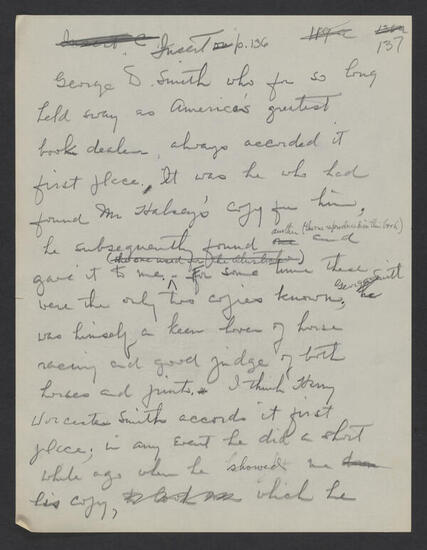 Insert p. 136
137
George D. Smith who for so long
held sway as America's greatest
book dealer, always accorded it
first place. It was he who had
found Mr Halsey's copy for him,
another (the one reproduced in this book)
he subsequently found and
(the one used for the illustration)
gave it to me. For some time these
George Smith
were the only two copies known, he
was himself a keen lover of horse
racing and good judge of both
horses and prints. I think Harry
Worcester Smith accords it first
place; in any event he did a short
while ago when he showed me
his copy, which he